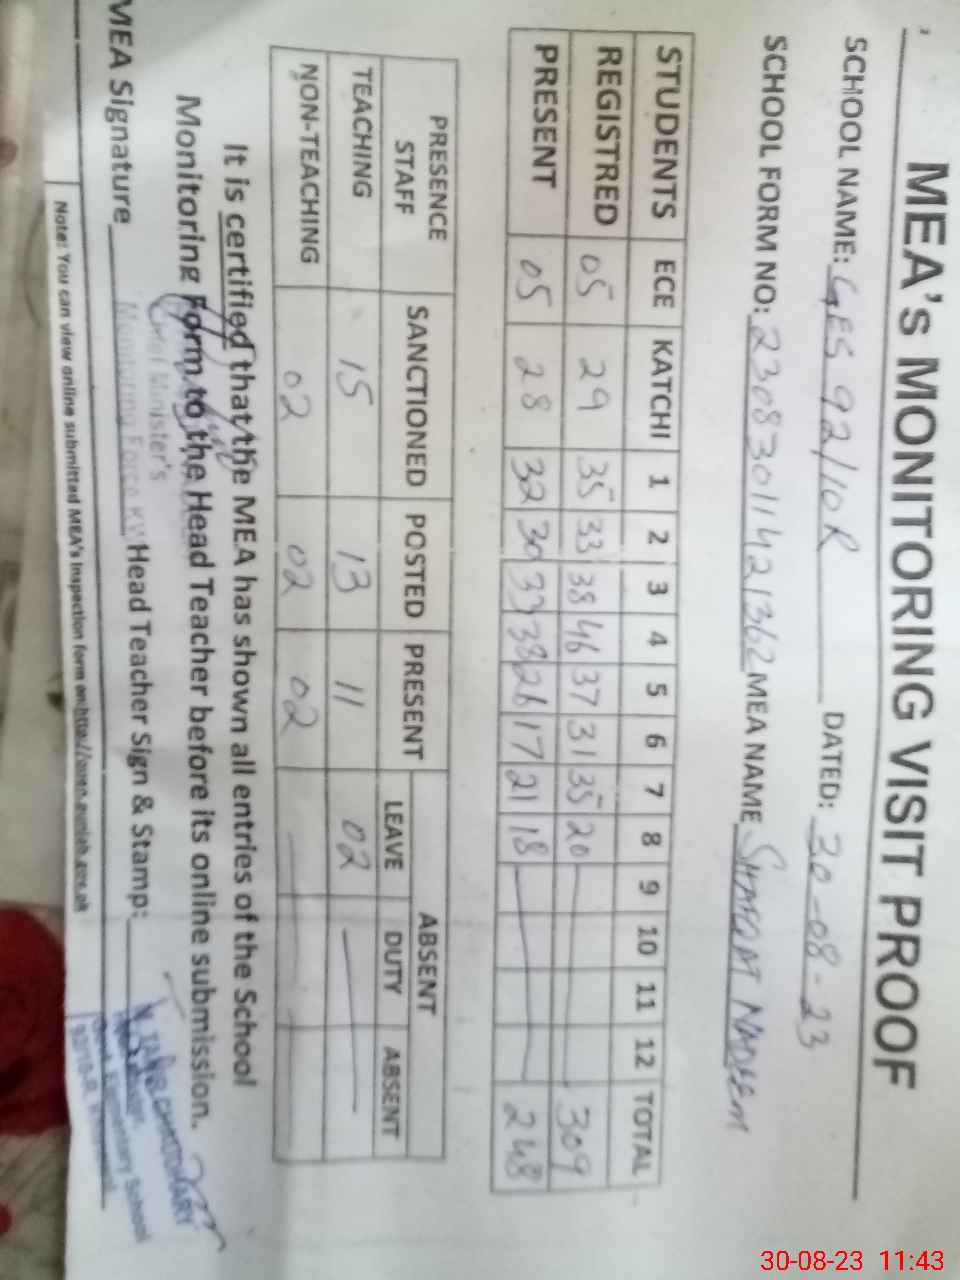 MEA's MONITORING VISIT PROOF
SCHOOL NAME: GES 92/10R DATED: 30-08-23
SCHOOL FORM NO: 23083011421362 MEA NAME SHAFQAT NADEEM
STUDENTS ECE KATCHI 1 2 3 4 5 6 7 8 9 10 11 12 TOTAL
REGISTRED 05 29 35 33 38 46 37 31 35 20 309
PRESENT 05 28 32 30 33 38 26 17 21 18 248
PRESENCE STAFF SANCTIONED POSTED PRESENT ABSENT
LEAVE DUTY ABSENT
TEACHING 15 13 11 02
NON-TEACHING 02 02 02
It is certified that the MEA has shown all entries of the School
Monitoring Form to the Head Teacher before its online submission.
Minister's
MEA Signature Monitoring Force Head Teacher Sign & Stamp:
Elementary School
92/10-R,
Note: You can view online submitted MEA's Inspection form on:
30-08-23 11:43